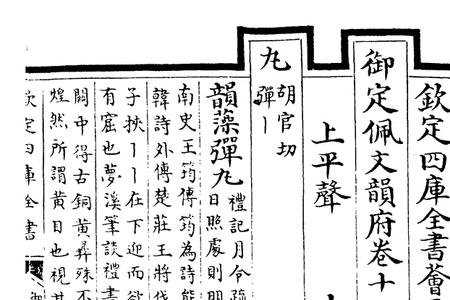 欽定四庫全書薈
御定佩文韻府卷十
上平聲
丸
胡官切
彈丨
韻藻彈丸
禮記月令疏
日照處則明
南史王筠傳筠為詩能
韓詩外傳楚莊王將伐
子挾丨丨在下迎而欲
有窟也夢溪筆談禮書
闕中得古銅黃彞殊不
煌然所謂黃目也視其
欽定四庫全書